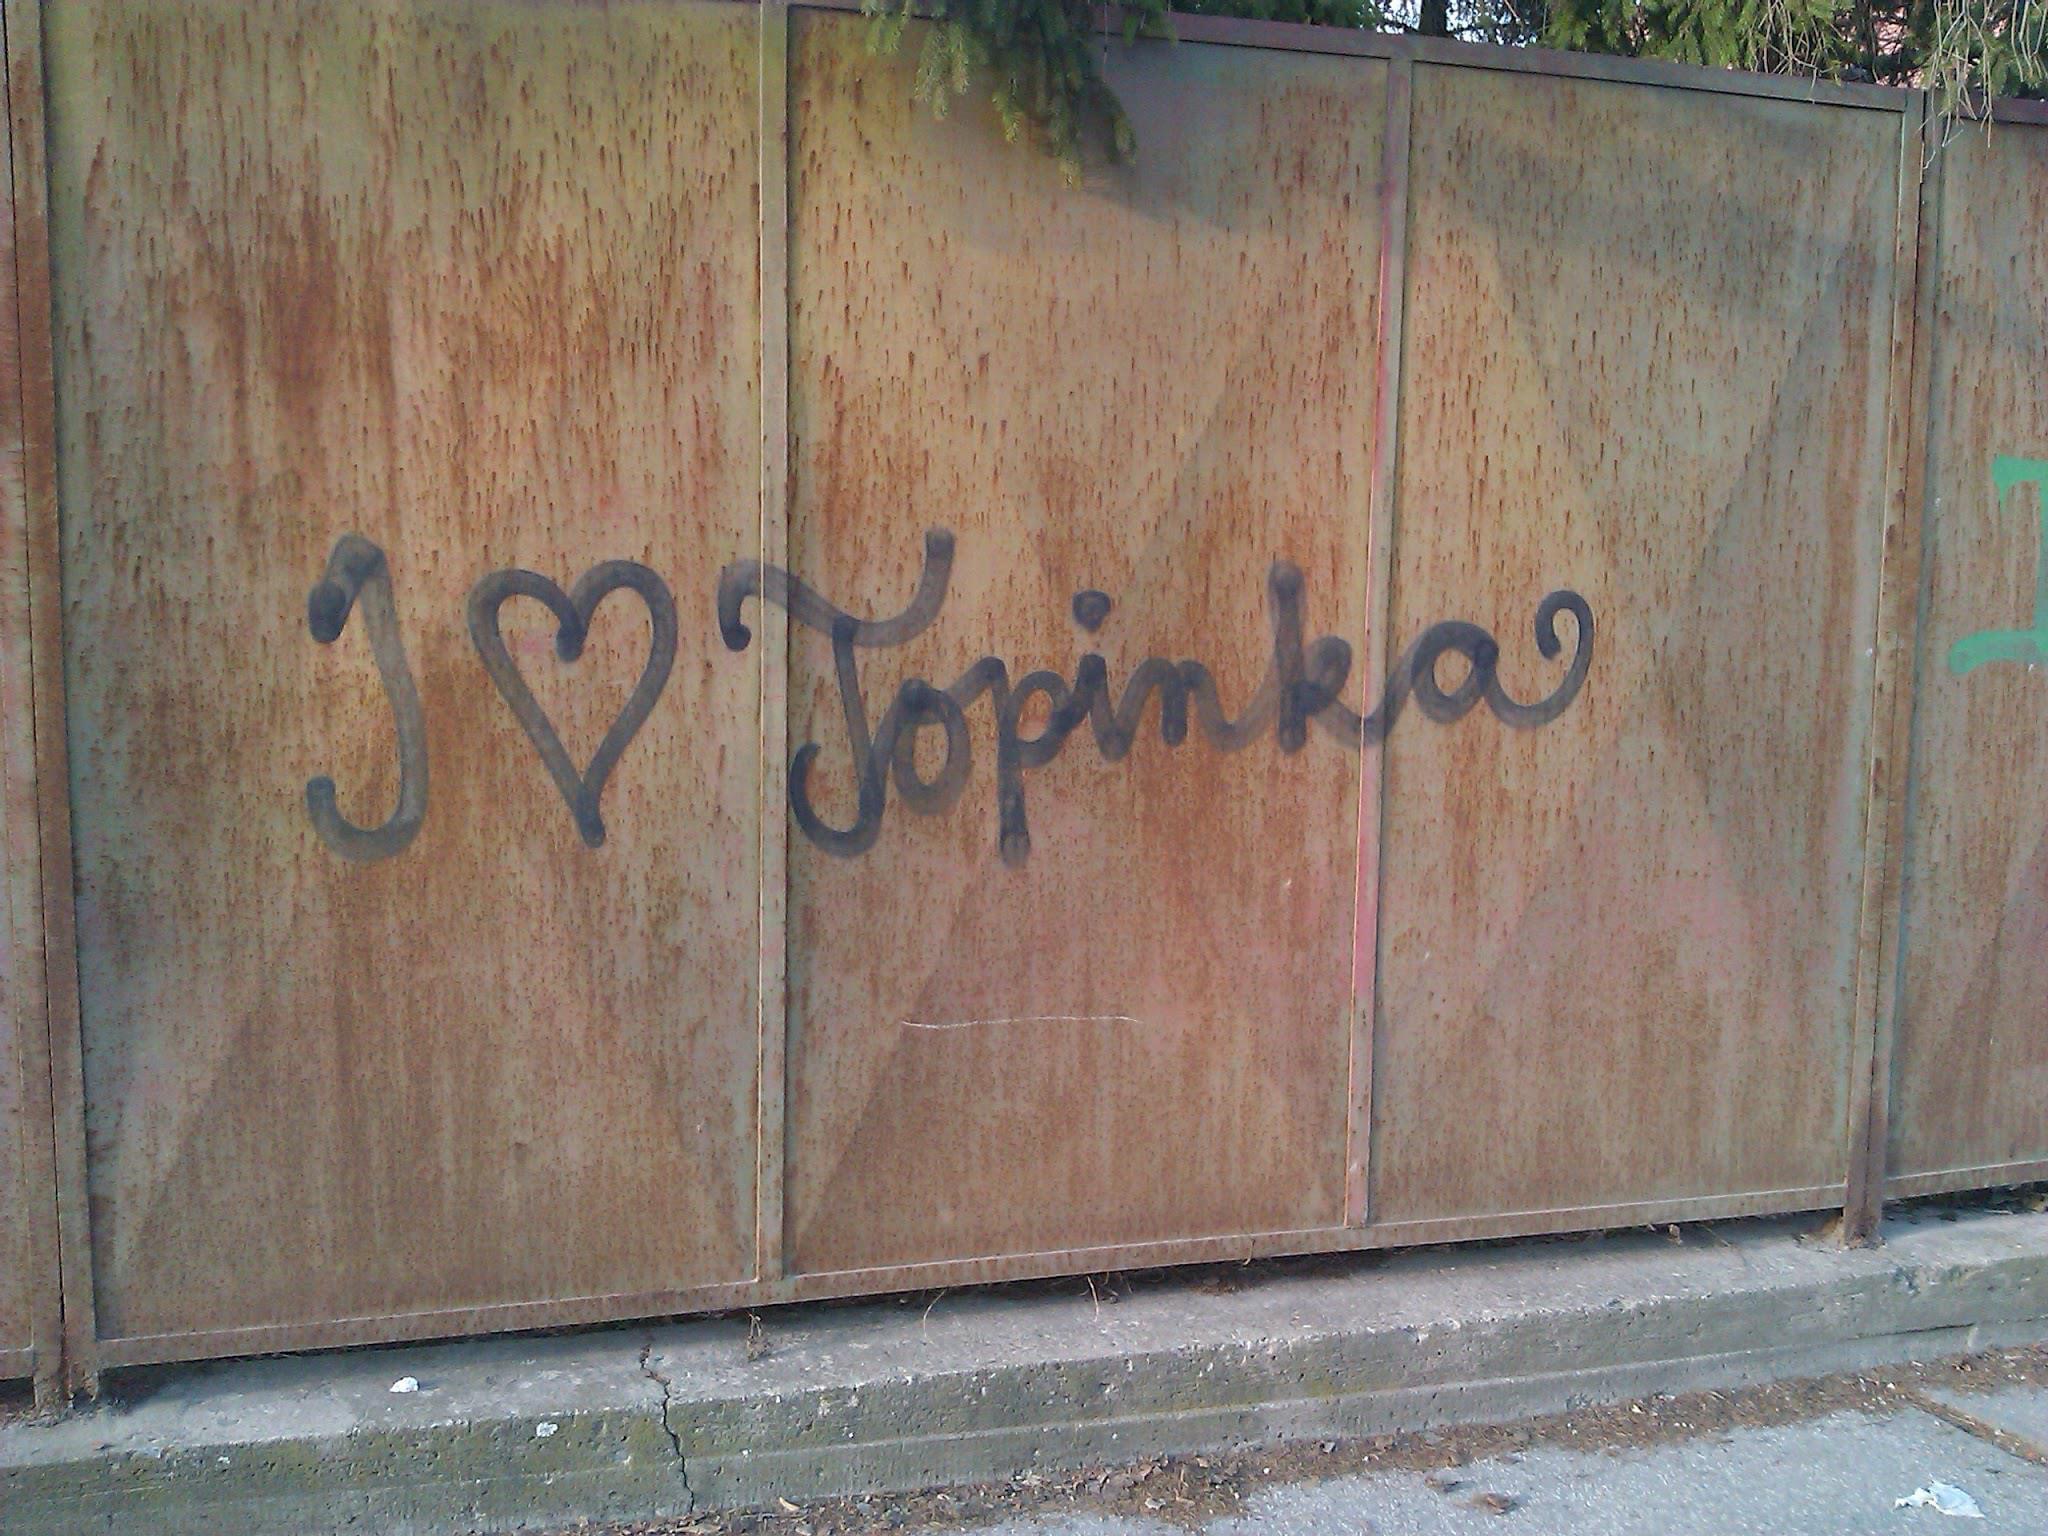 I ♡ Topinka